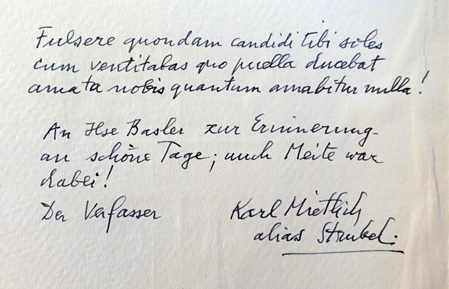 Fulsere quondam candidi tibi soles
cum ventitabas quo puella ducebat
amata nobis quantum amabitur nulla!
An Ilse Basler zur Erinnerung
an schöne Tage; auch Meite war
dabei!
Der Verfasser Karl Mietlich
alias Strubel.